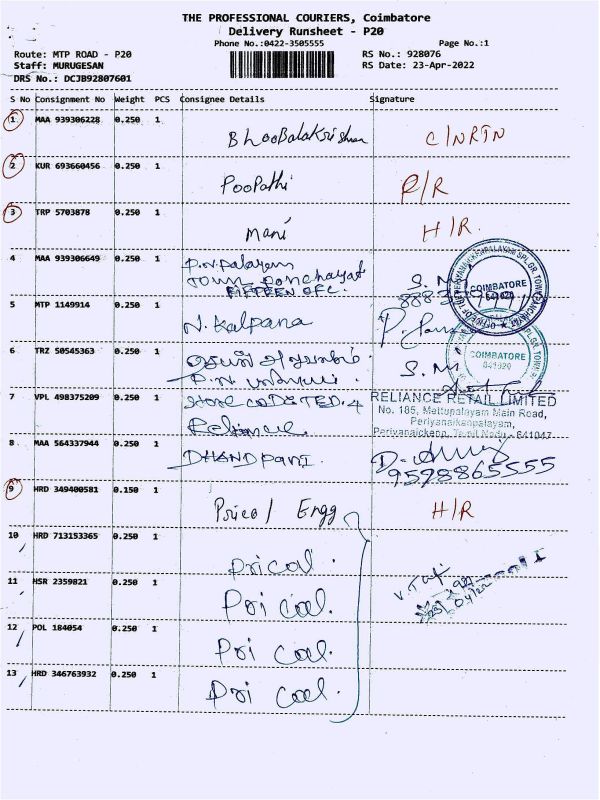 THE PROFESSIONAL COURIERS, Coimbatore
Delivery Runsheet - P20
Phone No.:0422-3505555 Page No.:1
Route: MTP ROAD - P20 RS No.: 928076
Staff: MURUGESAN RS Date: 23-Apr-2022
DRS No.: DCJB92807601
S No Consignment No Weight PCS Consignee Details Signature
1 MAA 939306228 0.250 1
BhooBalakrishnan C/NRTN
2 KUR 693660456 0.250 1
PooPathi R/R
3 TRP 5703878 0.250 1
Mani H/R.
4 MAA 939306649 0.250 1
P.N.Palayam
Town Panchayat
COIMBATORE
641020
5 MTP 1149914 0.250 1
N. Kalpana
6 TRZ 50545363 0.250 1
S.M
COIMBATORE
641020
7 VPL 498375209 0.250 1
Store CODE TED.4
Reliance.
RELIANCE RETAIL LIMITED
No. 185, Mettupalayam Main Road,
Periyanaikenpalayam,
8 MAA 564337944 0.250 1
DHANDPANI.
9598865555
9 HRD 349400581 0.150 1
Pricol Engg H/R
10 HRD 713153365 0.250 1
Pricol.
11 HSR 2359821 0.250 1
Pri col.
12 POL 184054 0.250 1
Pri col.
13 HRD 346763932 0.250 1
Pri col.